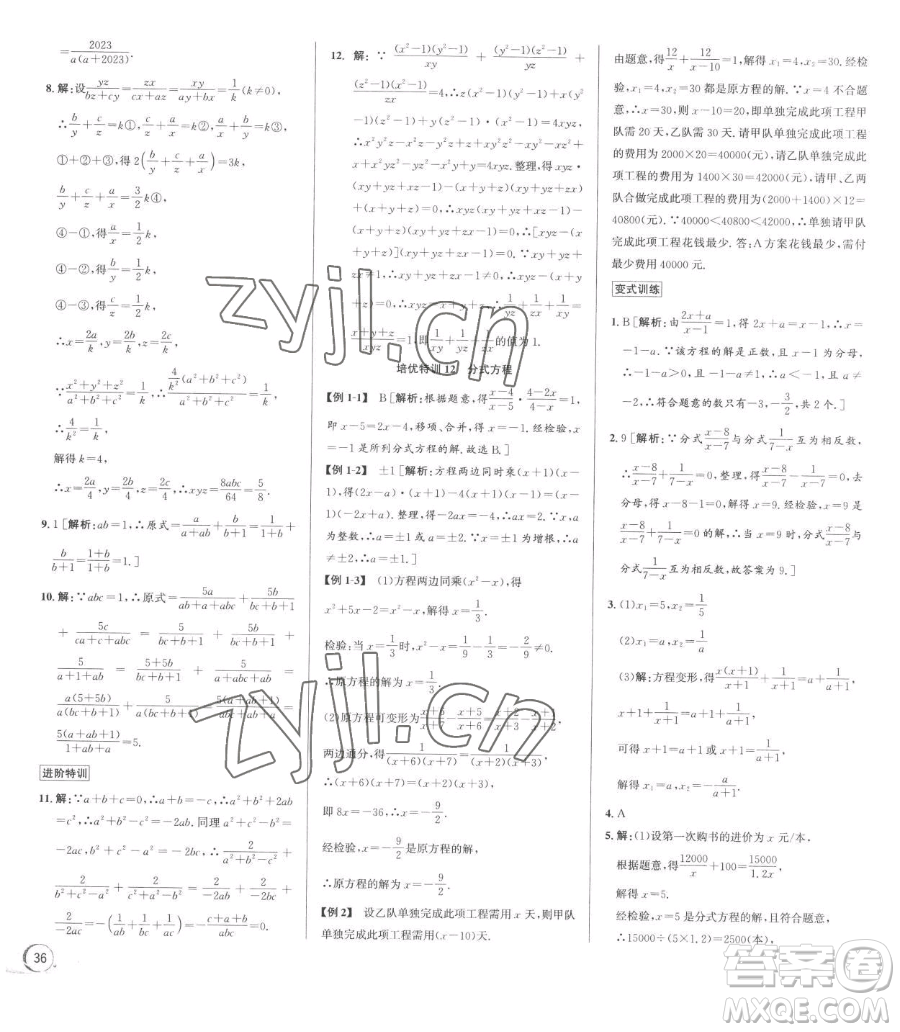 =2023/(a(a+2023)).
8. 解:设yz/(bz+cy)=zx/(cx+az)=xy/(ay+bx)=1/k(k≠0),
∴b/y+c/z=k①,c/z+a/x=k②,b/y+a/x=k③,
①+②+③,得2(b/y+c/z+a/x)=3k,
b/y+c/z+a/x=3/2k④,
④-①,得a/x=1/2k,
④-②,得b/y=1/2k,
④-③,得c/z=1/2k,
∴x=2a/k,y=2b/k,z=2c/k,
∵(x²+y²+z²)/(a²+b²+c²)=(4/k²(a²+b²+c²))/(a²+b²+c²)=1,∴
4/k²=1,
解得k=4,
∴x=2a/4,y=2b/4,z=2c/4,∴xyz=8abc/64=5/8.
9. 1[解析:ab=1,∴原式=a/(a+ab)+b/(b+1)=1/(1+b)+
b/(b+1)=(1+b)/(b+1)=1.]
10. 解:∵abc=1,∴原式=5a/(ab+a+abc)+5b/(bc+b+1)
+5c/(ca+c+abc)=5/(b+1+bc)+5b/(bc+b+1)+
5/(a+1+ab)=(5+5b)/(bc+b+1)+5/(a+1+ab)=
a(5+5b)/(a(bc+b+1))+5/(a+1+ab)=
5(a+ab+1)/(1+ab+a)=5.
进阶特训
11. 解:∵a+b+c=0,∴a+b=-c,∴a²+b²+2ab
=c²,∴a²+b²-c²=-2ab.同理a²+c²-b²=
-2ac,b²+c²-a²=-2bc,∴
2/(b²+c²-a²)+2/(a²+b²-c²)+2/(a²+c²-b²)=2/(-2bc)+2/(-2ab)+
2/(-2ac)=-(a+c+b)/(abc)=0.
36
12. 解:∵(x²-1)(y²-1)/(xy)+(y²-1)(z²-1)/(yz)+
(z²-1)(x²-1)/(zx)=4,∴z(x²-1)(y²-1)+x(y²
-1)(z²-1)+y(z²-1)(x²-1)=4xyz,
∴x²y²z-x²z-y²z+z+xy²z²-xy²-xz²+
x+x²yz²-x²y-yz²+y-4xyz=0.整理,得
xyz(xy+yz+zx-1)-(x+y+z)(xy+yz+
zx)+(x+y+z)=0,∴xyz(xy+yz+zx-1)-
(x+y+z)(xy+yz+zx-1)=0,∴[xyz-(x+
y+z)](xy+yz+zx-1)=0.∵xy+yz+zx≠
1,∴xyz-(x+y+z)=0,∴xyz=x+y+z,∴
(x+y+z)/(xyz)=1,即1/(xy)+1/(yz)+1/(zx)的值为1.
培优特训12 分式方程
【例1-1】 B[解析:根据题意,得(x-4)/(x-5)·(4-2x)/(4-x)=1,
即x-5=2x-4,移项、合并,得x=-1.经检验,
x=-1是所列分式方程的解.故选B.]
【例1-2】 ±1[解析:方程两边同时乘(x+1)(x-
1),得(2-a)(x+1)-4(x-1)=-2(x+1)(x-
1)-(1-2x)(x+1).整理,得-2ax=-4,∴ax=2.∵x,a
为整数,∴a=±1或a=±2.∵x=±1为增根,∴a
≠±2,∴a=±1.]
【例1-3】 (1)方程两边同乘(x²-x),得
x²+5x-2=x²-x,解得x=1/3.
检验:当x=1/3时,x²-x=1/9-1/3=-2/9≠0.
∴原方程的解为x=1/3.
(2)原方程可变形为(x+6)/(x+7)-(x+5)/(x+6)=(x+2)/(x+3)-(x+1)/(x+2),
两边通分,得1/((x+6)(x+7))=1/((x+2)(x+3)),
∴(x+6)(x+7)=(x+2)(x+3),
即8x=-36,∴x=-9/2.
经检验,x=-9/2是原方程的解.
∴原方程的解为x=-9/2.
【例2】 设乙队单独完成此项工程需用x天,则甲队
单独完成此项工程需用(x-10)天.
由题意,得12/x+12/(x-10)=1,解得x₁=4,x₂=30.经检
验,x₁=4,x₂=30都是原方程的解.∵x=4不合题
意,∴x=30,则x-10=20,即单独完成此项工程甲
队需20天,乙队需30天.请甲队单独完成此项工程
的费用为2000×20=40000(元),请乙队单独完成此
项工程的费用为1400×30=42000(元),请甲、乙两
队合做完成此项工程的费用为(2000+1400)×12=
40800(元).∵40000<40800<42000,∴单独请甲队
完成此项工程花钱最少.答:A方案花钱最少,需付
最少费用40000元.
变式训练
1. B[解析:由(2x+a)/(x-1)=1,得2x+a=x-1,∴x=
-1-a.∵该方程的解是正数,且x-1为分母,
∴-1-a>0且-1-a≠1,解得a<-1且a≠
-2,∴符合题意的数只有-3,-3/2,共2个.]
2. 9[解析:∵分式(x-8)/(x-7)与分式1/(7-x)互为相反数,
∴(x-8)/(x-7)+1/(7-x)=0,整理,得(x-8)/(x-7)-1/(x-7)=0,去
分母,得x-8-1=0,解得x=9.经检验,x=9是
(x-8)/(x-7)+1/(7-x)=0的解,∴当x=9时,分式(x-8)/(x-7)与
分式1/(7-x)互为相反数,故答案为9.]
3. (1)x₁=5,x₂=1/5
(2)x₁=a,x₂=1/a
(3)解:方程变形,得x(x+1)/(x+1)+1/(x+1)=a+1/(a+1),
x+1+1/(x+1)=a+1+1/(a+1),
可得x+1=a+1或x+1=1/(a+1),
解得x₁=a,x₂=-a/(a+1).
4. A
5. 解:(1)设第一次购书的进价为x元/本.
根据题意,得12000/x+100=15000/1.2x.
解得x=5.
经检验,x=5是分式方程的解且符合题意,
∴15000÷(5×1.2)=2500(本),
zyjl.cn
zyjl.cn
答案圈
MXQE.COM